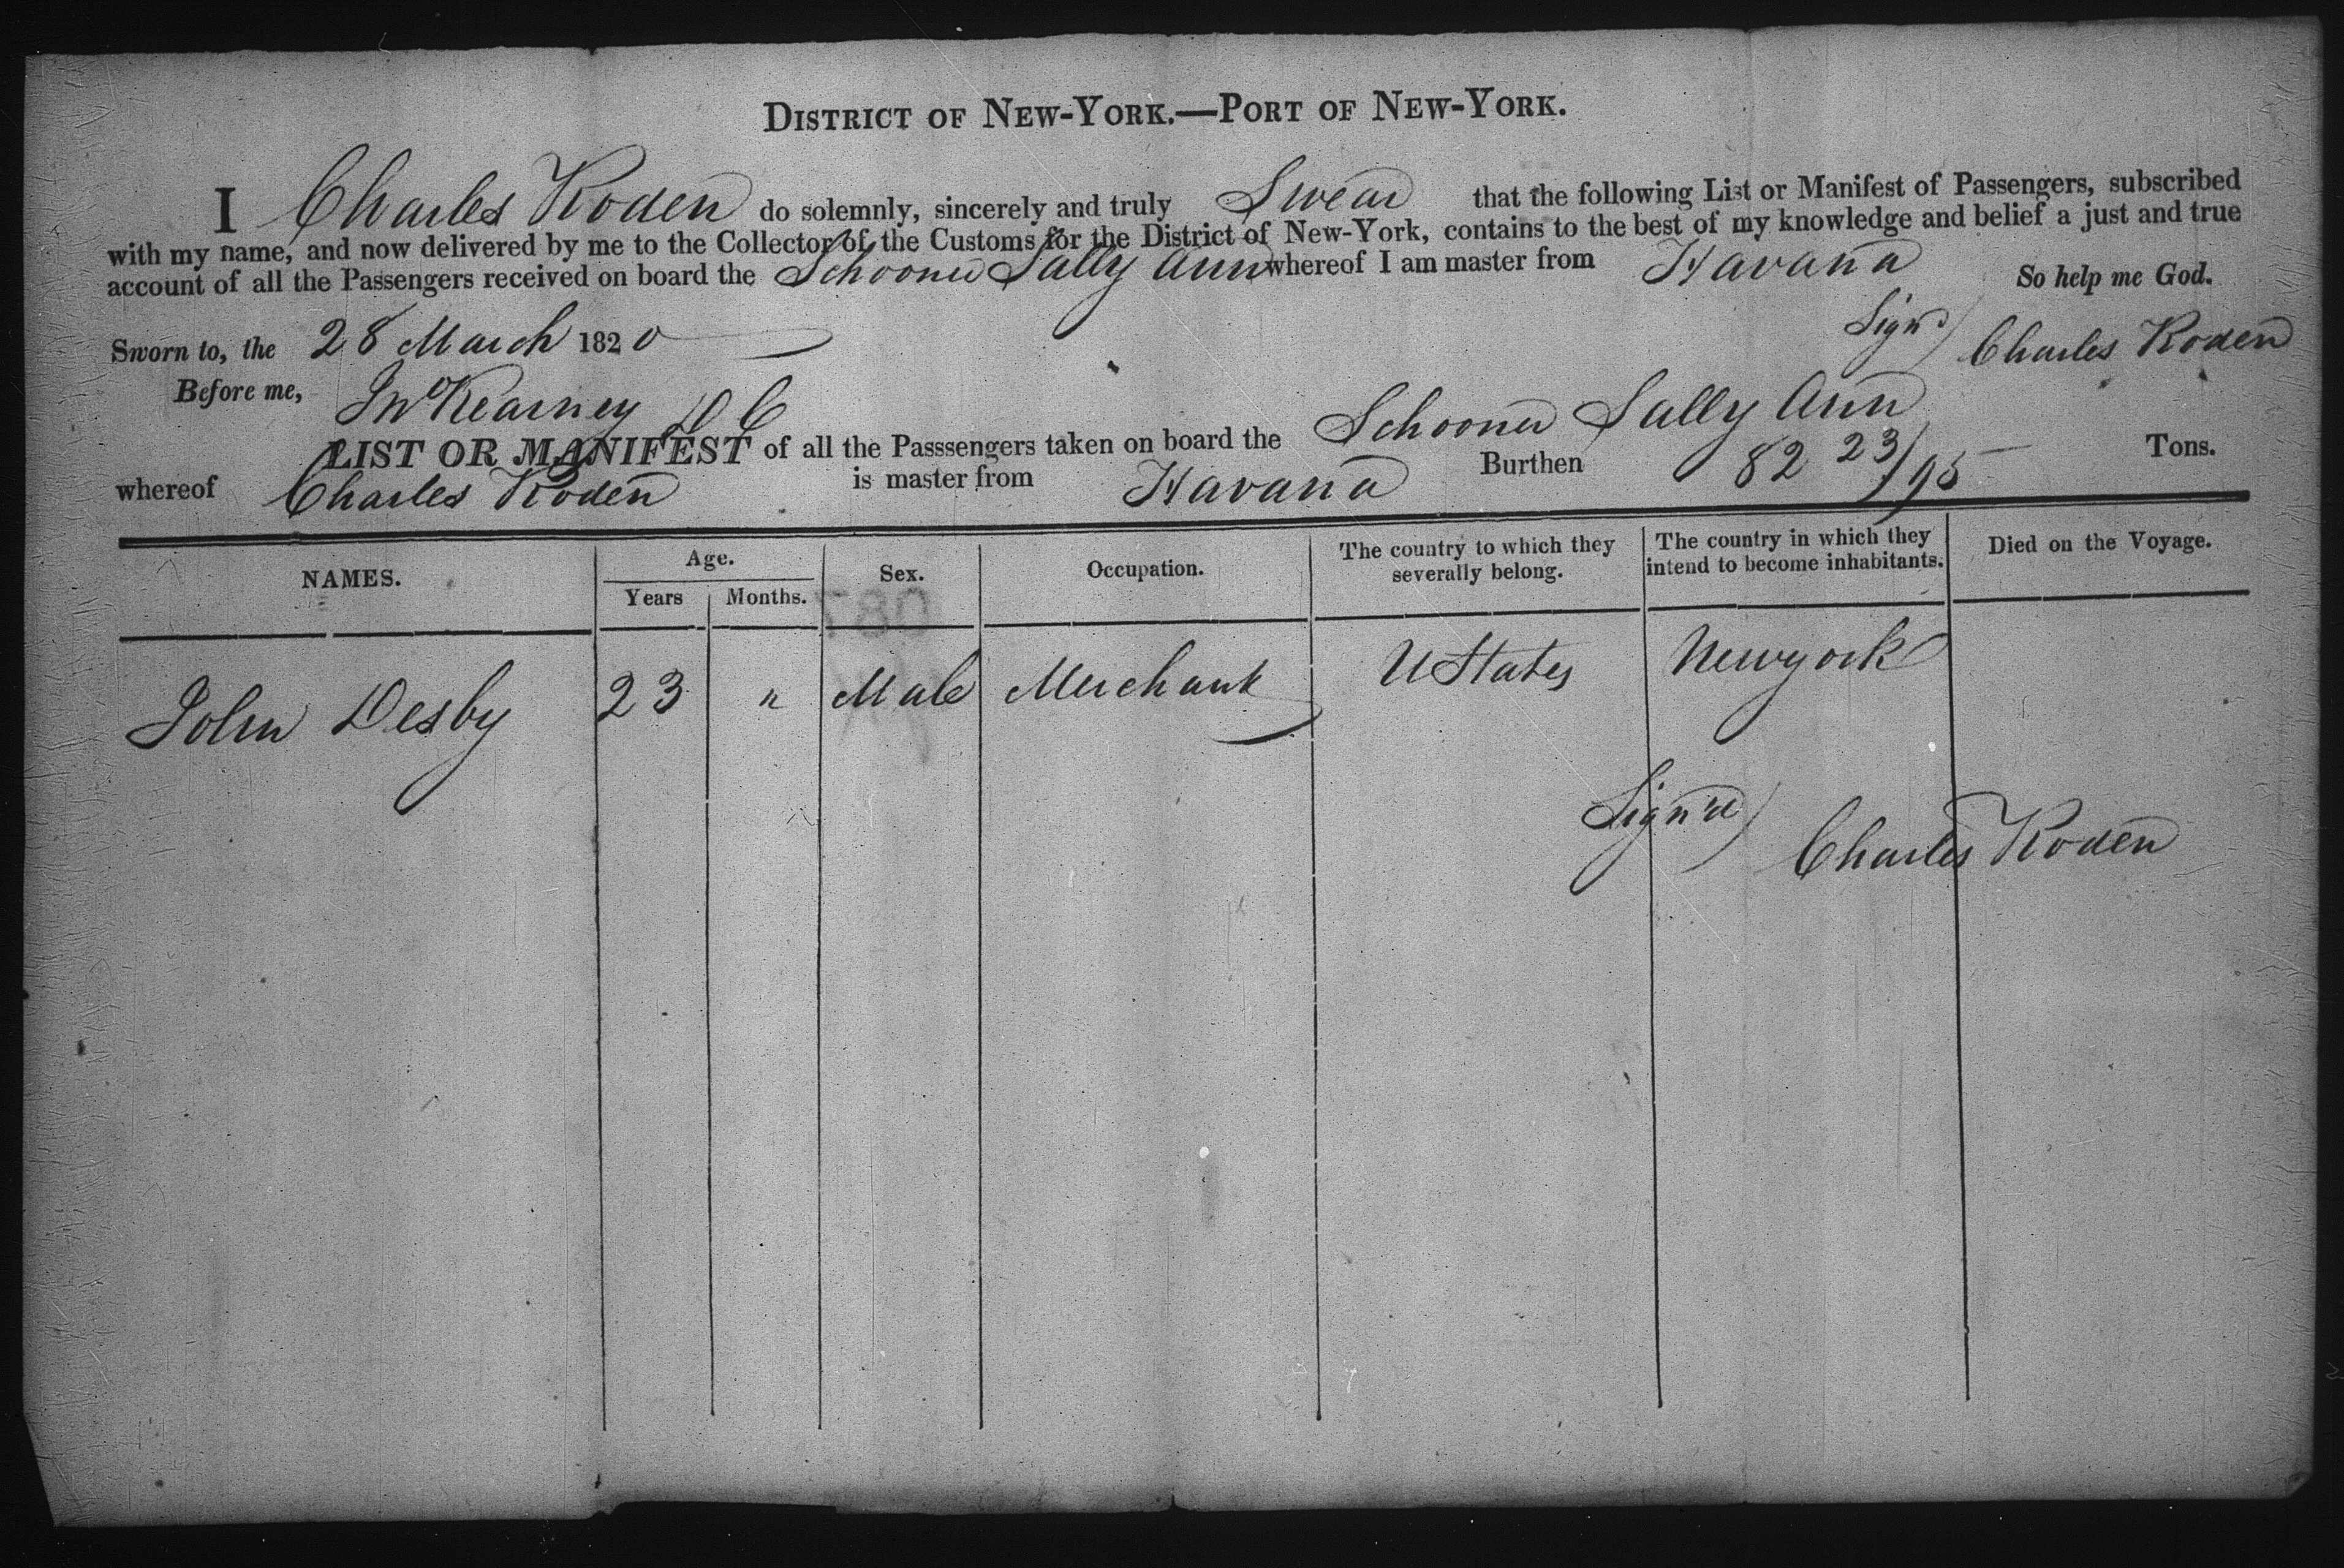 DISTRICT OF NEW-YORK.—PORT OF NEW-YORK.
I Charles Roden do solemnly, sincerely and truly Swear that the following List or Manifest of Passengers, subscribed
with my name, and now delivered by me to the Collector of the Customs for the District of New-York, contains to the best of my knowledge and belief a just and true
account of all the Passengers received on board the Schooner Sally Ann whereof I am master from Havana So help me God.
Sworn to, the 28 March 1820
Sign'd) Charles Roden
Before me, Jno Kearney D C
LIST OR MANIFEST of all the Passsengers taken on board the Schooner Sally Ann
whereof Charles Roden is master from Havana Burthen 82 23/95 Tons.
NAMES. Age. Sex. Occupation. The country to which they severally belong. The country in which they intend to become inhabitants. Died on the Voyage.
Years Months.
John Desby 23 " Male Merchant U States Newyork
Sign'd) Charles Roden